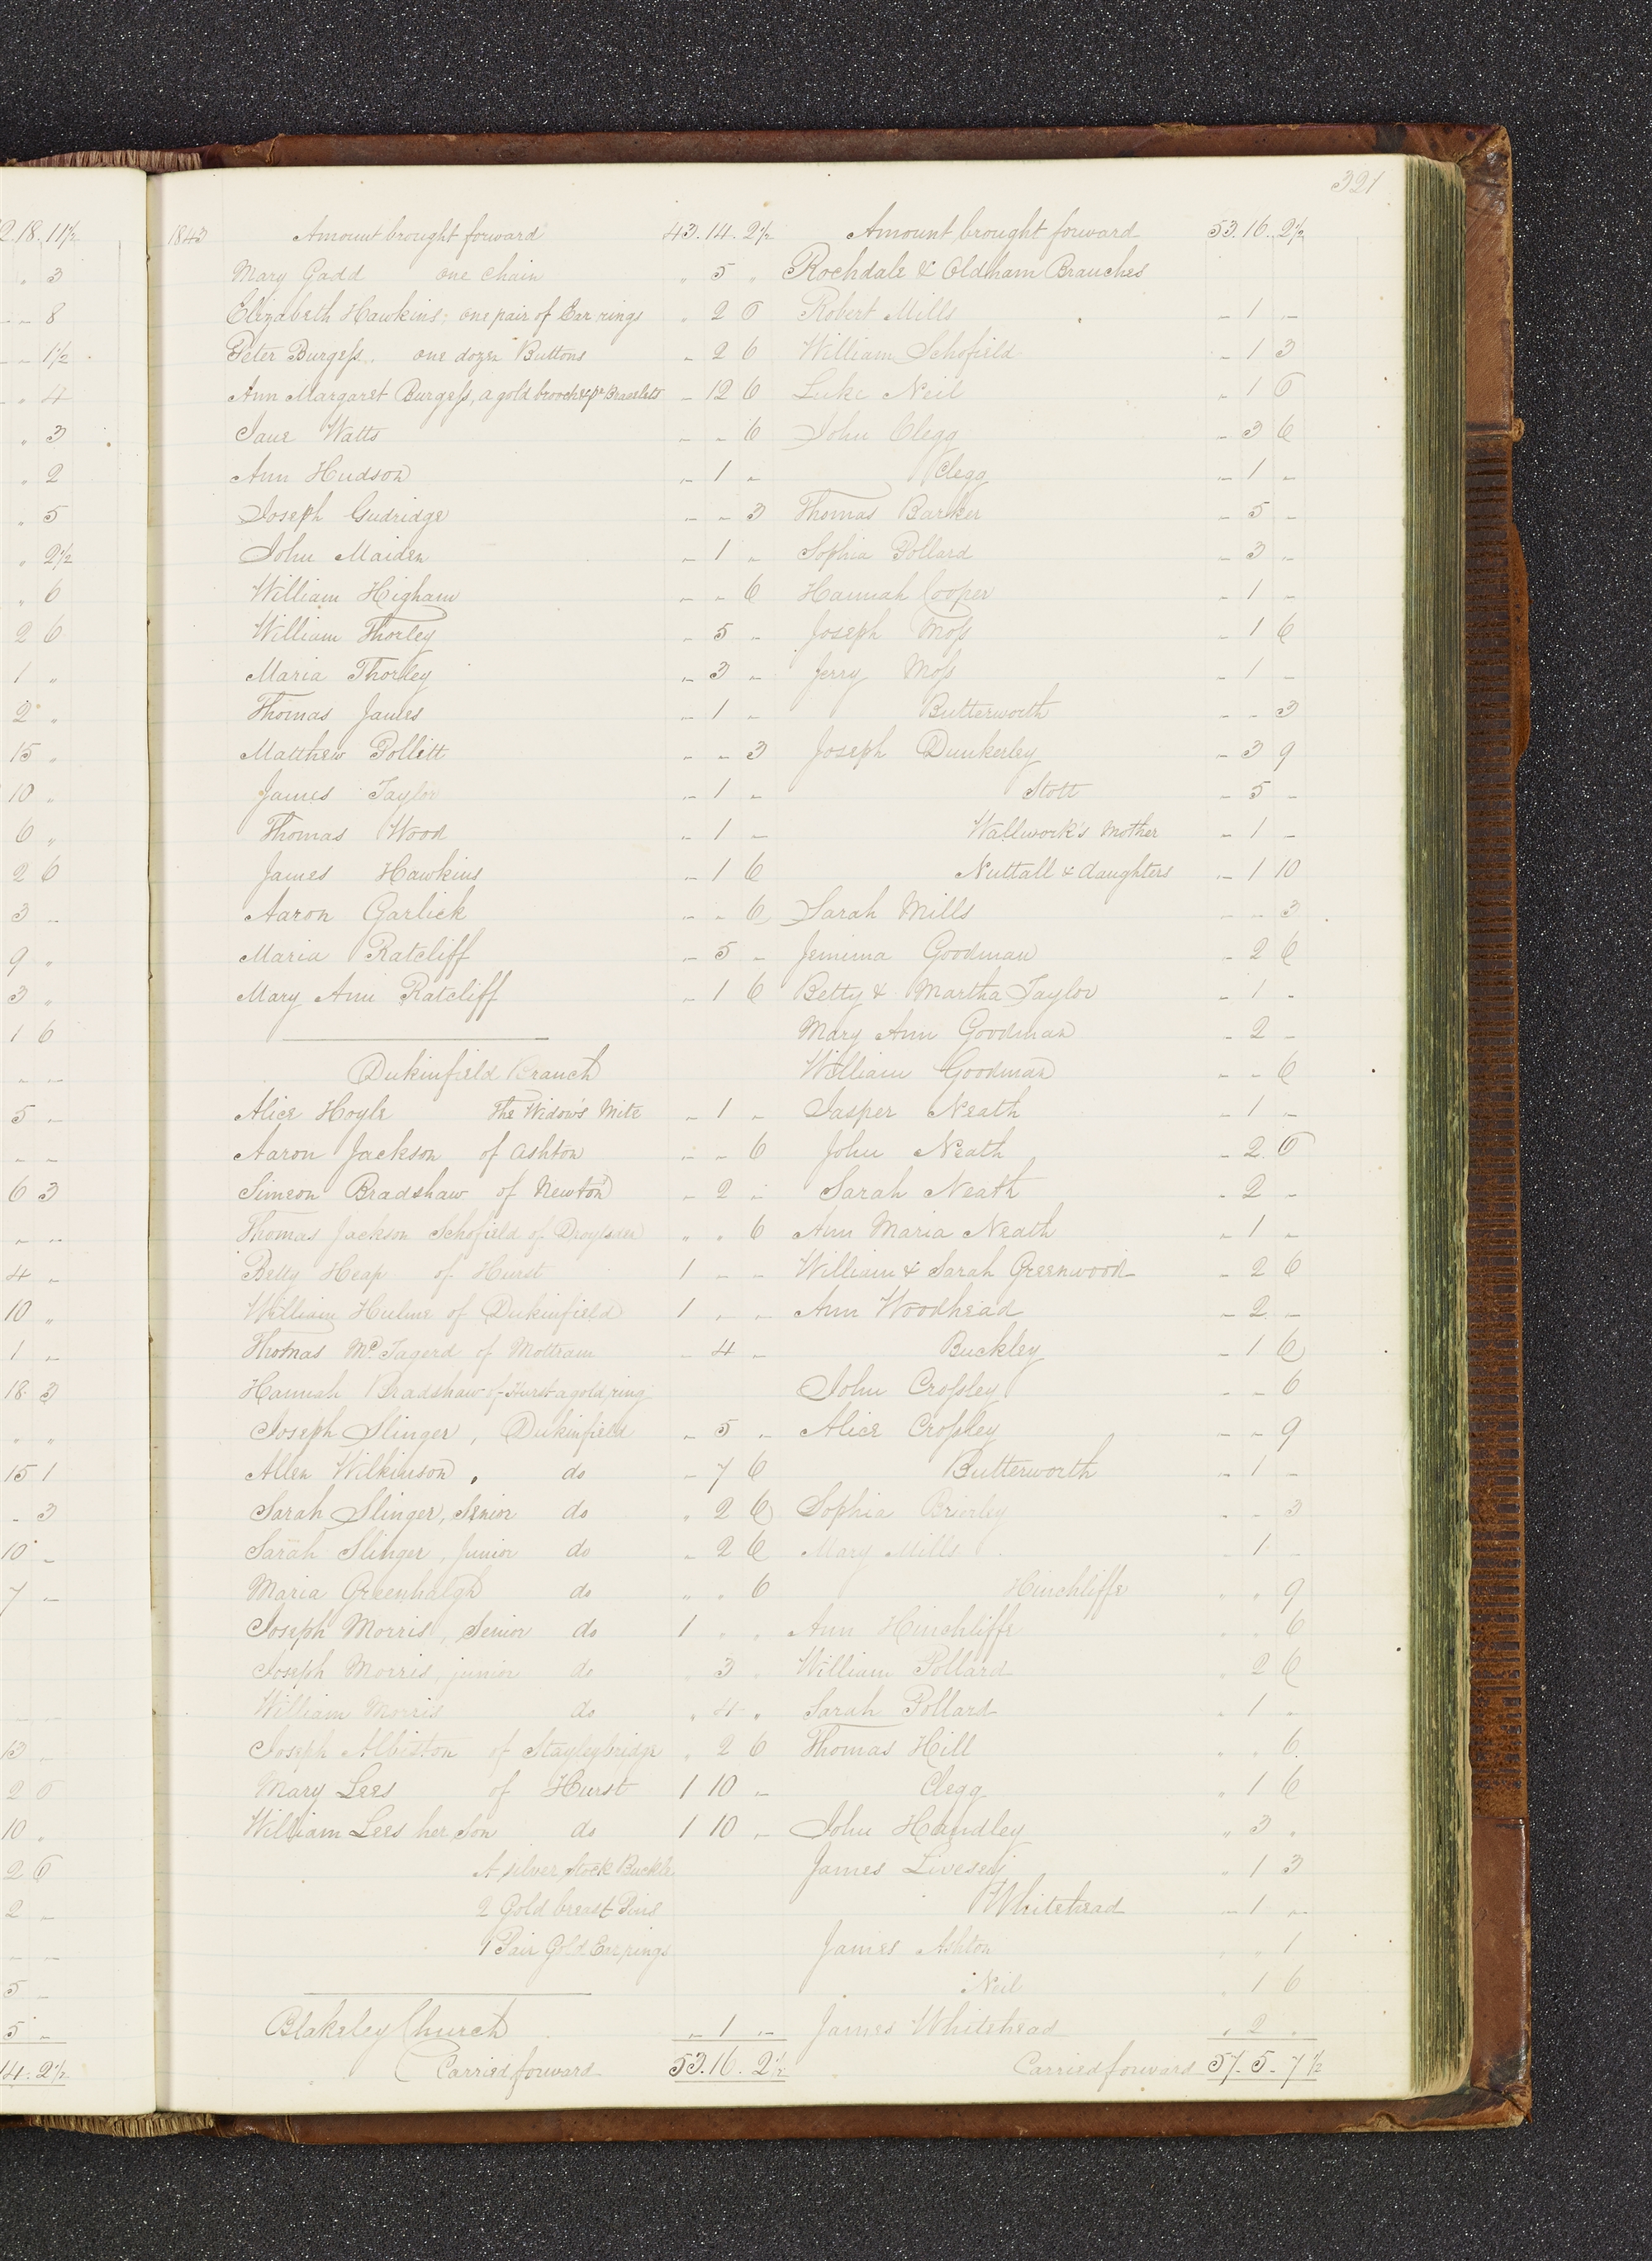 321
1843 Amount brought forward 43.14.2½
Mary Gadd one chain " 5 "
Elizabeth Hawkins; one pair of Ear rings " 2 6
Peter Burgess. one dozen Buttons - 2 6
Ann Margaret Burgess, a gold brooch & pr Bracelets - 12 6
Jane Watts - - 6
Ann Hudson - 1 -
Joseph Gudridge - - 3
John Maiden - 1 -
William Higham - - 6
William Thorley - 5 -
Maria Thorley - 3 -
Thomas James - 1 -
Matthew Pollitt - - 3
James Taylor - 1 -
Thomas Wood - 1 -
James Hawkins - 1 6
Aaron Garlick - - 6
Maria Ratcliff - 5 -
Mary Ann Ratcliff - 1 6
Dukinfield Branch
Alice Hoyle The Widow's Mite - 1 -
Aaron Jackson of Ashton - - 6
Simeon Bradshaw of Newton - 2 -
Thomas Jackson Schofield of Droylsden " " 6
Betty Heap of Hurst 1 - -
William Hulme of Dukinfield 1 - -
Thomas Mc Tagerd of Mottram - 4 -
Hannah Bradshaw of Hurst a gold ring
Joseph Slinger, Dukinfield - 5 -
Allen Wilkinson, do - 7 6
Sarah Slinger, Senior do " 2 6
Sarah Slinger, Junior do - 2 6
Maria Greenhalgh do " " 6
Joseph Morris, Senior do 1 " "
Joseph Morris, junior do " 3 "
William Morris do " 4 "
Joseph Albiston of Stayleybridge " 2 6
Mary Lees of Hurst 1 10 -
William Lees her Son do 1 10 -
A silver Stock Buckle
2 Gold breast Pins
1 Pair Gold Ear rings
Blakeley Church - 1 -
Carried forward 53.16.2½
Amount brought forward 53.16.2½
Rochdale & Oldham Branches
Robert Mills - 1 -
William Schofield - 1 3
Luke Neil - 1 6
John Clegg - 3 6
Clegg - 1 -
Thomas Barker - 5 -
Sophia Pollard - 3 -
Hannah Cooper - 1 -
Joseph Moss - 1 6
Jerry Moss - 1 -
Butterworth - - 3
Joseph Dunkerley - 3 9
Stott - 5 -
Wallwork's Mother - 1 -
Nuttall & daughters - 1 10
Sarah Mills - - 3
Jemima Goodman - 2 6
Betty & Martha Taylor - 1 -
Mary Ann Goodman - 2 -
William Goodman - - 6
Jasper Neath - 1 -
John Neath - 2.6
Sarah Neath - 2 -
Ann Maria Neath - 1 -
William & Sarah Greenwood - 2 6
Ann Woodhead - 2 -
Buckley - 1 6
John Crossley - - 6
Alice Crossley - - 9
Butterworth - 1 -
Sophia Brierley - - 3
Mary Mills - 1 -
Hinchliffe " " 9
Ann Hinchliffe " " 6
William Pollard " 2 6
Sarah Pollard " 1 "
Thomas Hill " " 6
Clegg " 1 6
John Handley " 3 "
James Livesey " 1 3
Whitehead - 1 -
James Ashton " " 1
Neil " 1 6
James Whitehead " 2 "
Carried forward 57.5.7½
2.18.11½
" 3
- - 8
- - 1½
- " 4
" 3
" 2
" 5
" 2½
" 6
2 6
1 "
2 "
15 "
10 "
6 "
2 6
3 -
9 "
3 "
1 6
- -
5 -
- -
6 3
- -
4 -
10 "
1 -
18 3
" "
15 1
- 3
10 -
7 -
13 -
2 6
10 "
2 6
2 -
- -
5 -
5 -
14.2½